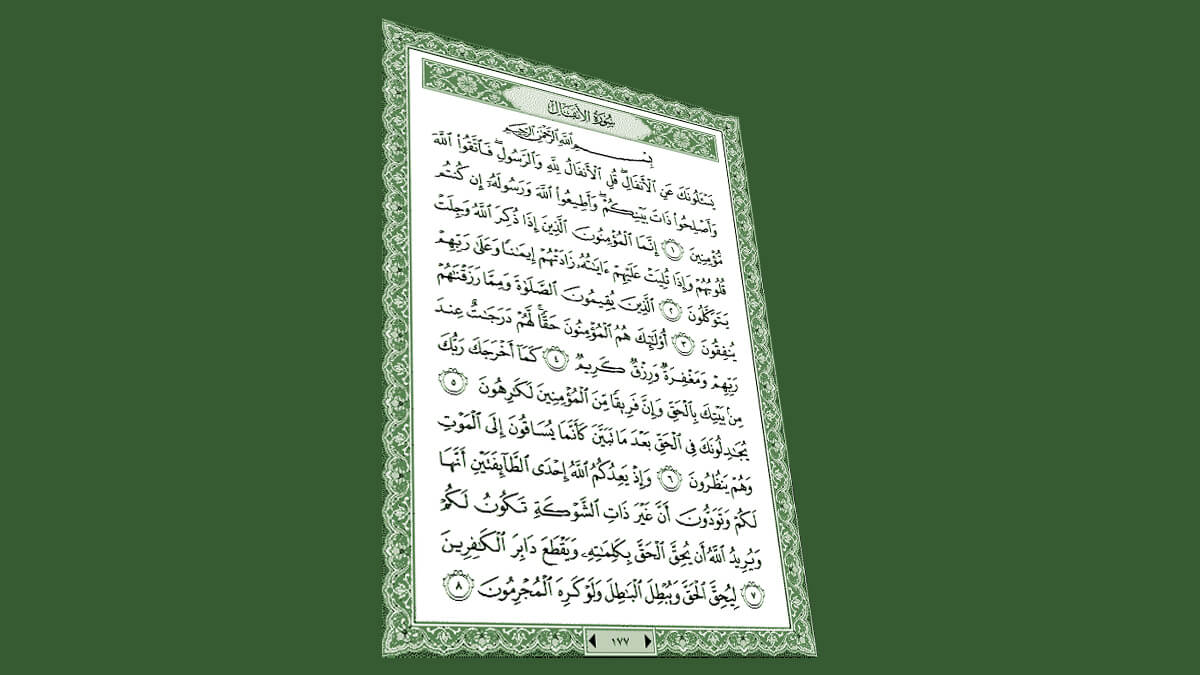 سُورَةُ الأَنفَالِ
بِسْمِ ٱللَّهِ ٱلرَّحْمَٰنِ ٱلرَّحِيمِ
يَسْـَٔلُونَكَ عَنِ ٱلْأَنفَالِ ۖ قُلِ ٱلْأَنفَالُ لِلَّهِ وَٱلرَّسُولِ ۖ فَٱتَّقُوا۟ ٱللَّهَ
وَأَصْلِحُوا۟ ذَاتَ بَيْنِكُمْ ۖ وَأَطِيعُوا۟ ٱللَّهَ وَرَسُولَهُۥٓ إِن كُنتُم
مُّؤْمِنِينَ ١ إِنَّمَا ٱلْمُؤْمِنُونَ ٱلَّذِينَ إِذَا ذُكِرَ ٱللَّهُ وَجِلَتْ
قُلُوبُهُمْ وَإِذَا تُلِيَتْ عَلَيْهِمْ ءَايَٰتُهُۥ زَادَتْهُمْ إِيمَٰنًا وَعَلَىٰ رَبِّهِمْ
يَتَوَكَّلُونَ ٢ ٱلَّذِينَ يُقِيمُونَ ٱلصَّلَوٰةَ وَمِمَّا رَزَقْنَٰهُمْ
يُنفِقُونَ ٣ أُو۟لَٰٓئِكَ هُمُ ٱلْمُؤْمِنُونَ حَقًّا ۚ لَّهُمْ دَرَجَٰتٌ عِندَ
رَبِّهِمْ وَمَغْفِرَةٌ وَرِزْقٌ كَرِيمٌ ٤ كَمَآ أَخْرَجَكَ رَبُّكَ
مِنۢ بَيْتِكَ بِٱلْحَقِّ وَإِنَّ فَرِيقًا مِّنَ ٱلْمُؤْمِنِينَ لَكَٰرِهُونَ ٥
يُجَٰدِلُونَكَ فِى ٱلْحَقِّ بَعْدَ مَا تَبَيَّنَ كَأَنَّمَا يُسَاقُونَ إِلَى ٱلْمَوْتِ
وَهُمْ يَنظُرُونَ ٦ وَإِذْ يَعِدُكُمُ ٱللَّهُ إِحْدَى ٱلطَّآئِفَتَيْنِ أَنَّهَا
لَكُمْ وَتَوَدُّونَ أَنَّ غَيْرَ ذَاتِ ٱلشَّوْكَةِ تَكُونُ لَكُمْ
وَيُرِيدُ ٱللَّهُ أَن يُحِقَّ ٱلْحَقَّ بِكَلِمَٰتِهِۦ وَيَقْطَعَ دَابِرَ ٱلْكَٰفِرِينَ
٧ لِيُحِقَّ ٱلْحَقَّ وَيُبْطِلَ ٱلْبَٰطِلَ وَلَوْ كَرِهَ ٱلْمُجْرِمُونَ ٨
١٧٧